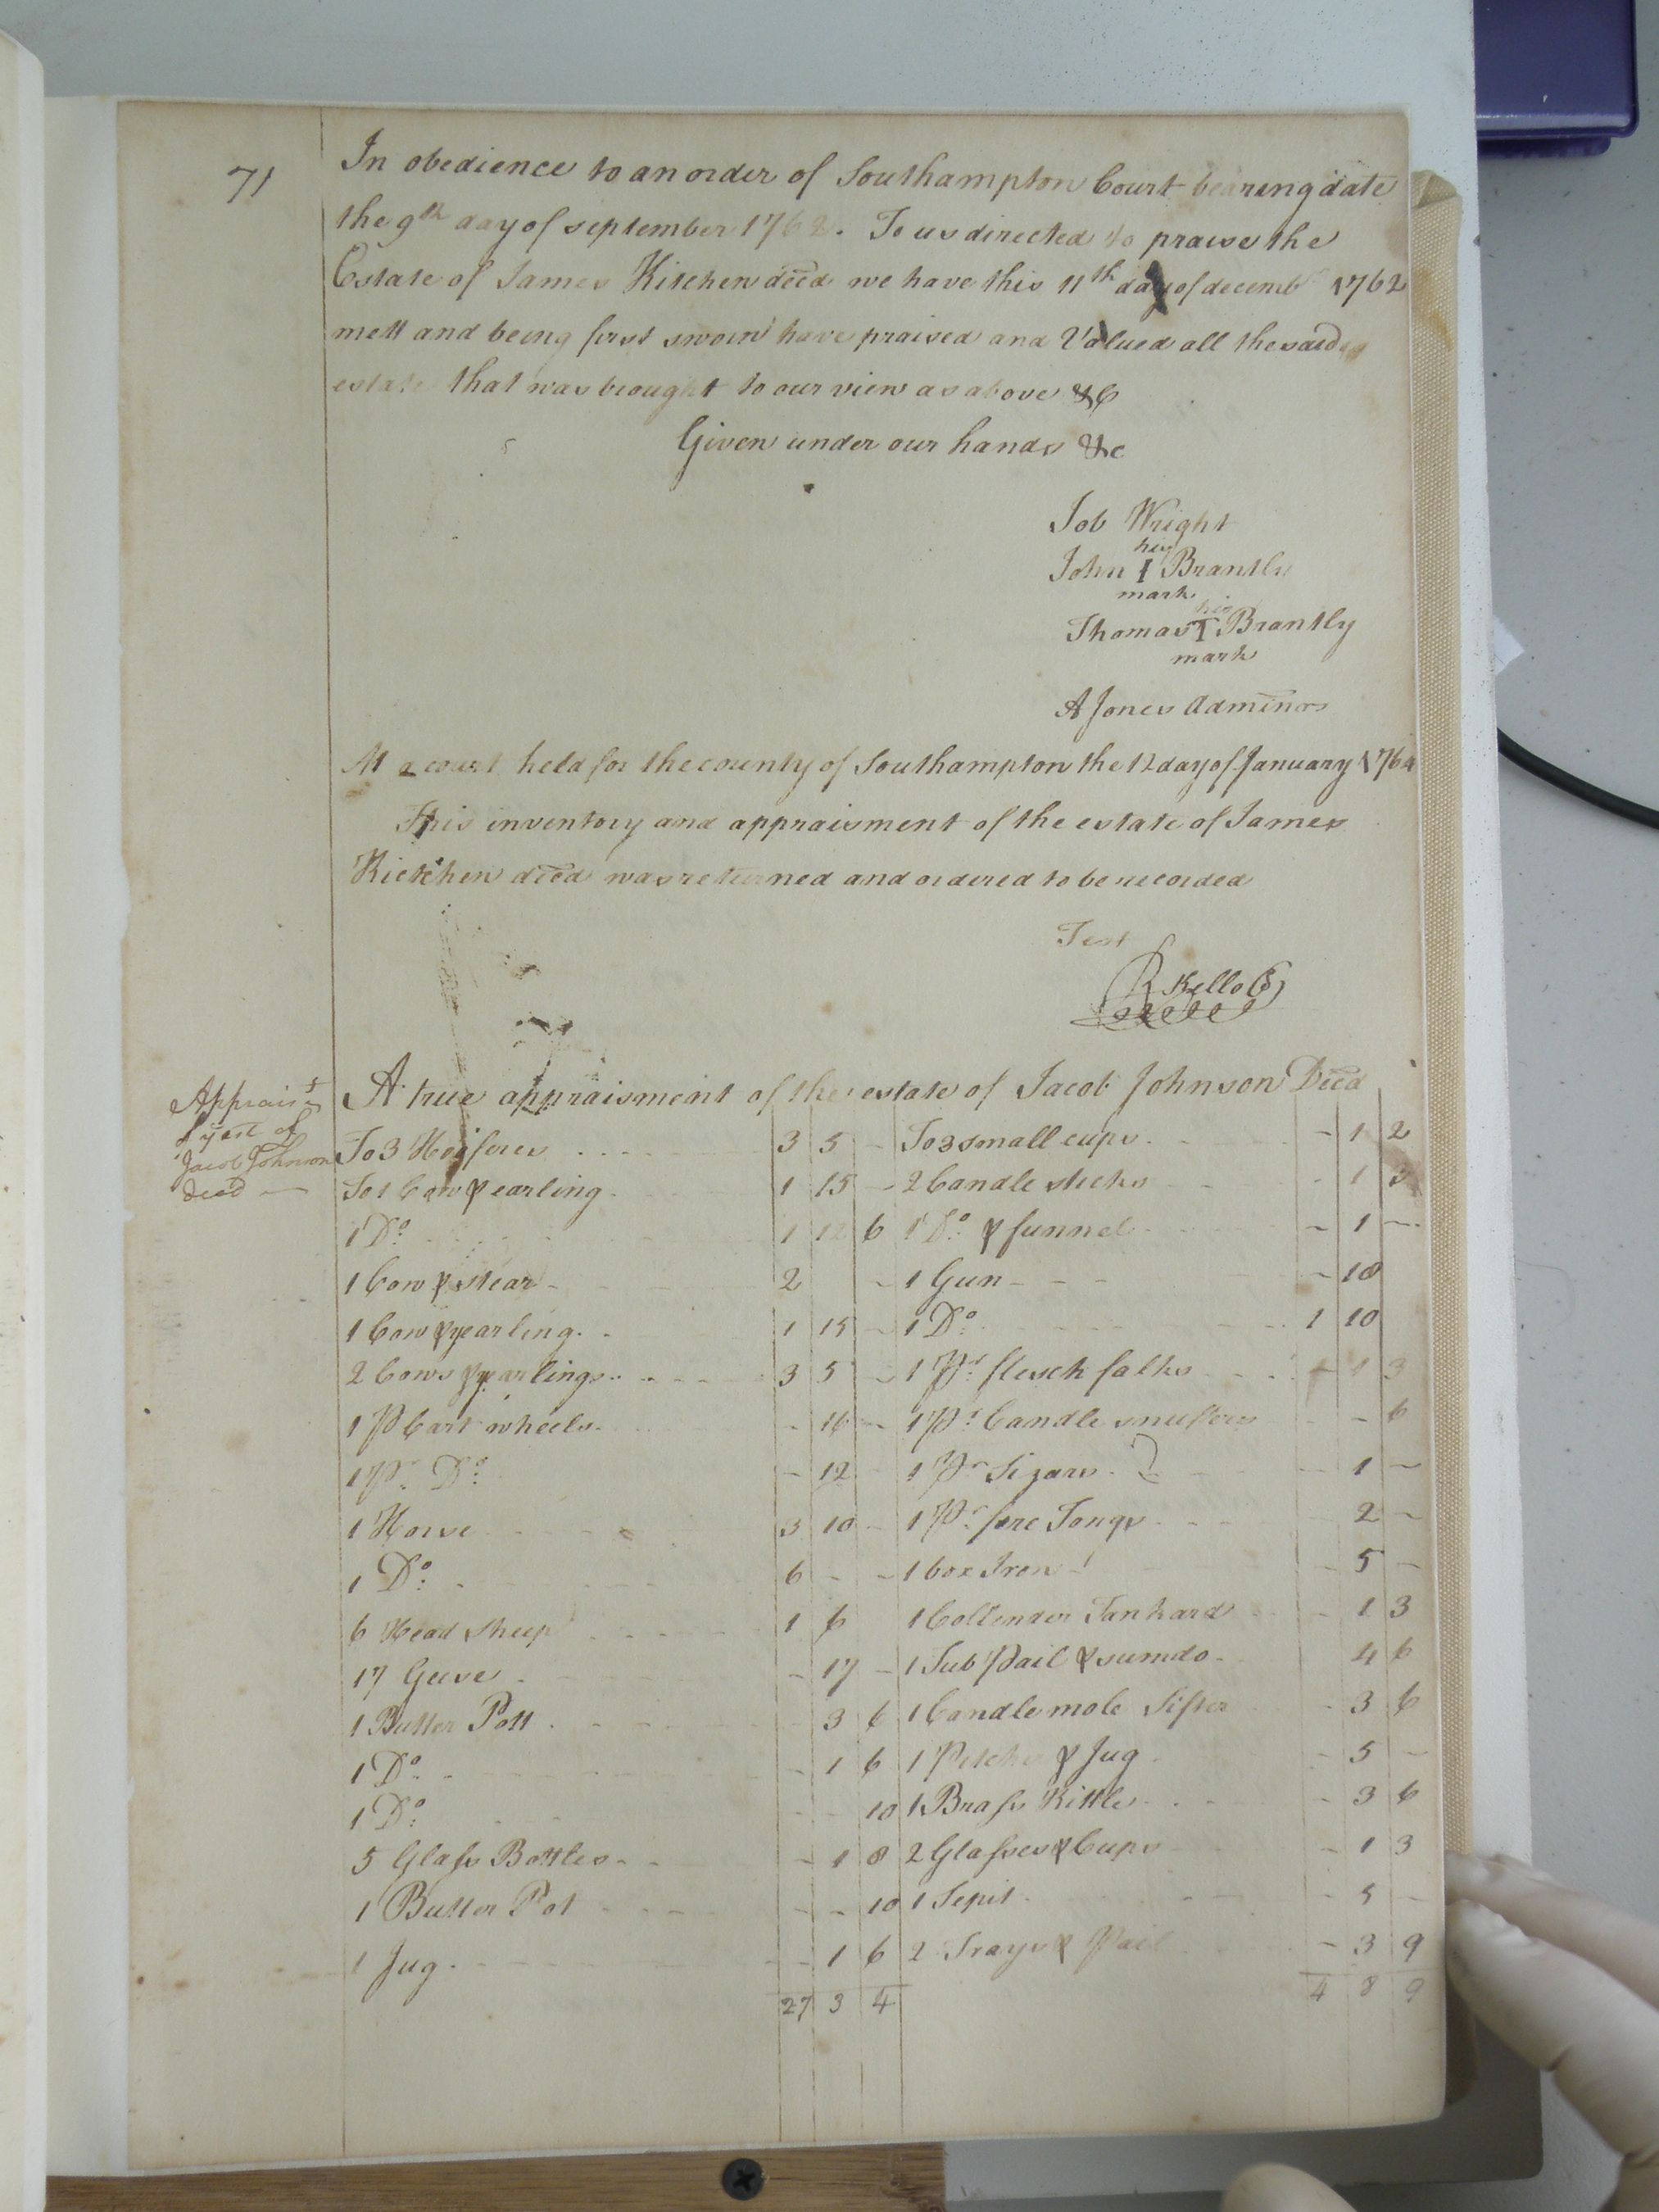 71
In obedience to an order of Southampton Court bearing date
the 9th day of september 1762. To us directed to praise the
Estate of James Kitchen decd we have this 11th day of decemb 1762
mett and being first sworn have praised and Valued all the said
estate that was brought to our view as above &C
Given under our hands &c
Job Wright
his
John I Brantly
mark
his
Thomas T Brantly
mark
A Jones Adminor
At a court held for the county of Southampton the 12 day of January 1764
This inventory and appraisment of the estate of James
Kitchen decd was returned and ordered to be recorded
Test
R Kello C
Appraist
of ye est of
Jacob Johnson
decd
A true appraisment of the estate of Jacob Johnson Decd
To 3 Heiferes 3 5 - To 3 small cups - 1 2
To 1 Cow & earling 1 15 - 2 Candle sticks - 1 3
1 Do 1 12 6 1 Do & funnel - 1 -
1 Cow & stear 2 - 1 Gun - 18
1 Cow & yearling 1 15 - 1 Do 1 10
2 Cows & yearlings 3 5 - 1 Pr flesh falks - 1 3
1 P Cart wheels - 16 - 1 Pr Candle snuffers - - 6
1 Pr Do - 12 - 1 Pr Sizars - 1 -
1 Horse 3 10 - 1 Pr fire Tongs - 2 -
1 Do 6 - - 1 box Iron - 5 -
6 Head sheep 1 6 1 Collender Tankard - 1 3
17 Geese - 17 - 1 Tub Pail & sumdo 4 6
1 Butter Pott - 3 6 1 Candle mole Sifter - 3 6
1 Do - 1 6 1 Pitcher & Jug - 5 -
1 Do - - 10 1 Brass Kittle - 3 6
5 Glass Bottles - 1 8 2 Glasses & Cups - 1 3
1 Butter Pot - - 10 1 Sepit - 5 -
1 Jug - 1 6 2 Trays & Pail - 3 9
27 3 4 4 8 9